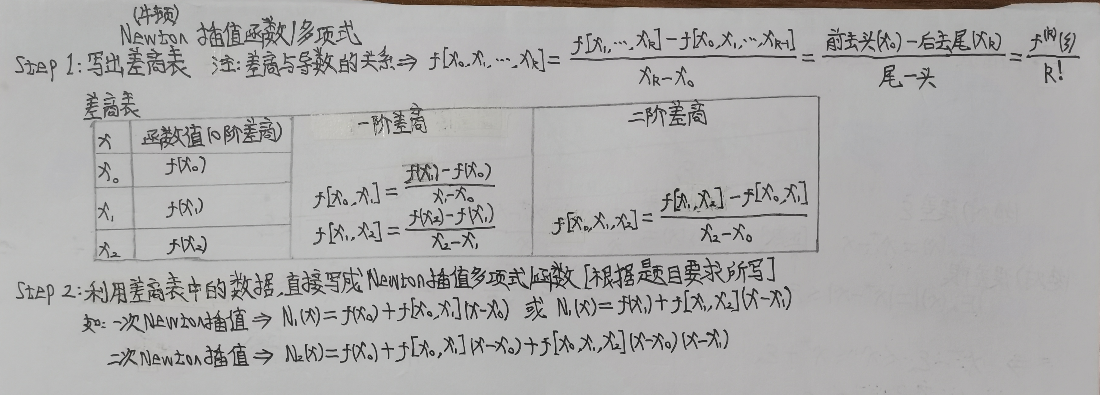 (牛顿)
Newton 插值函数/多项式
Step 1:写出差商表 注:差商与导数的关系⇒ f[x₀,x₁,…,xₖ]= (f[x₁,…,xₖ]-f[x₀,x₁,…,xₖ₋₁])/(xₖ-x₀) = (前去头(x₀)-后去尾(xₖ))/(尾-头) = f⁽ᵏ⁾(ξ)/k!
差商表
x 函数值(0阶差商) 一阶差商 二阶差商
x₀ f(x₀)
x₁ f(x₁) f[x₀,x₁]= (f(x₁)-f(x₀))/(x₁-x₀)
x₂ f(x₂) f[x₁,x₂]= (f(x₂)-f(x₁))/(x₂-x₁) f[x₀,x₁,x₂]= (f[x₁,x₂]-f[x₀,x₁])/(x₂-x₀)
Step 2:利用差商表中的数据,直接写成Newton插值多项式/函数[根据题目要求所写]
如:一次Newton插值⇒ N₁(x)=f(x₀)+f[x₀,x₁](x-x₀) 或 N₁(x)=f(x₁)+f[x₁,x₂](x-x₁)
二次Newton插值⇒ N₂(x)=f(x₀)+f[x₀,x₁](x-x₀)+f[x₀,x₁,x₂](x-x₀)(x-x₁)